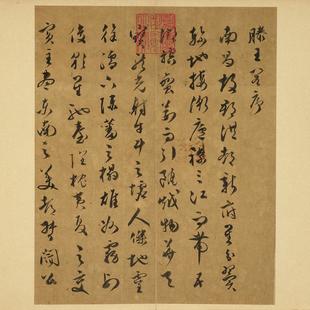 滕王閣序
南昌故郡洪都新府星分翼
軫地接衡廬襟三江而帶五
湖控蠻荊而引甌越物華天
寶龍光射牛斗之墟人傑地靈
徐孺下陳蕃之榻雄州霧列
俊彩星馳臺隍枕夷夏之交
賓主盡東南之美都督閻公